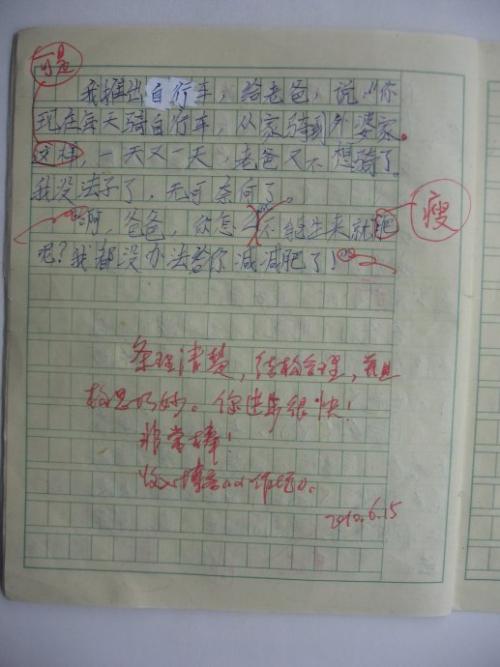 可是
我推出自行车，给老爸，说“你
现在每天骑自行车，从家骑到外婆家。
这样，一天又一天，老爸又不想骑了。
我没法子了，无可奈何了。
啊，爸爸，你怎么不能生来就肥
瘦
呢？我都没办法给你减减肥了！”
条理清楚，结构合理，而且
构思巧妙。你进步很快！
非常棒！
2010.6.15